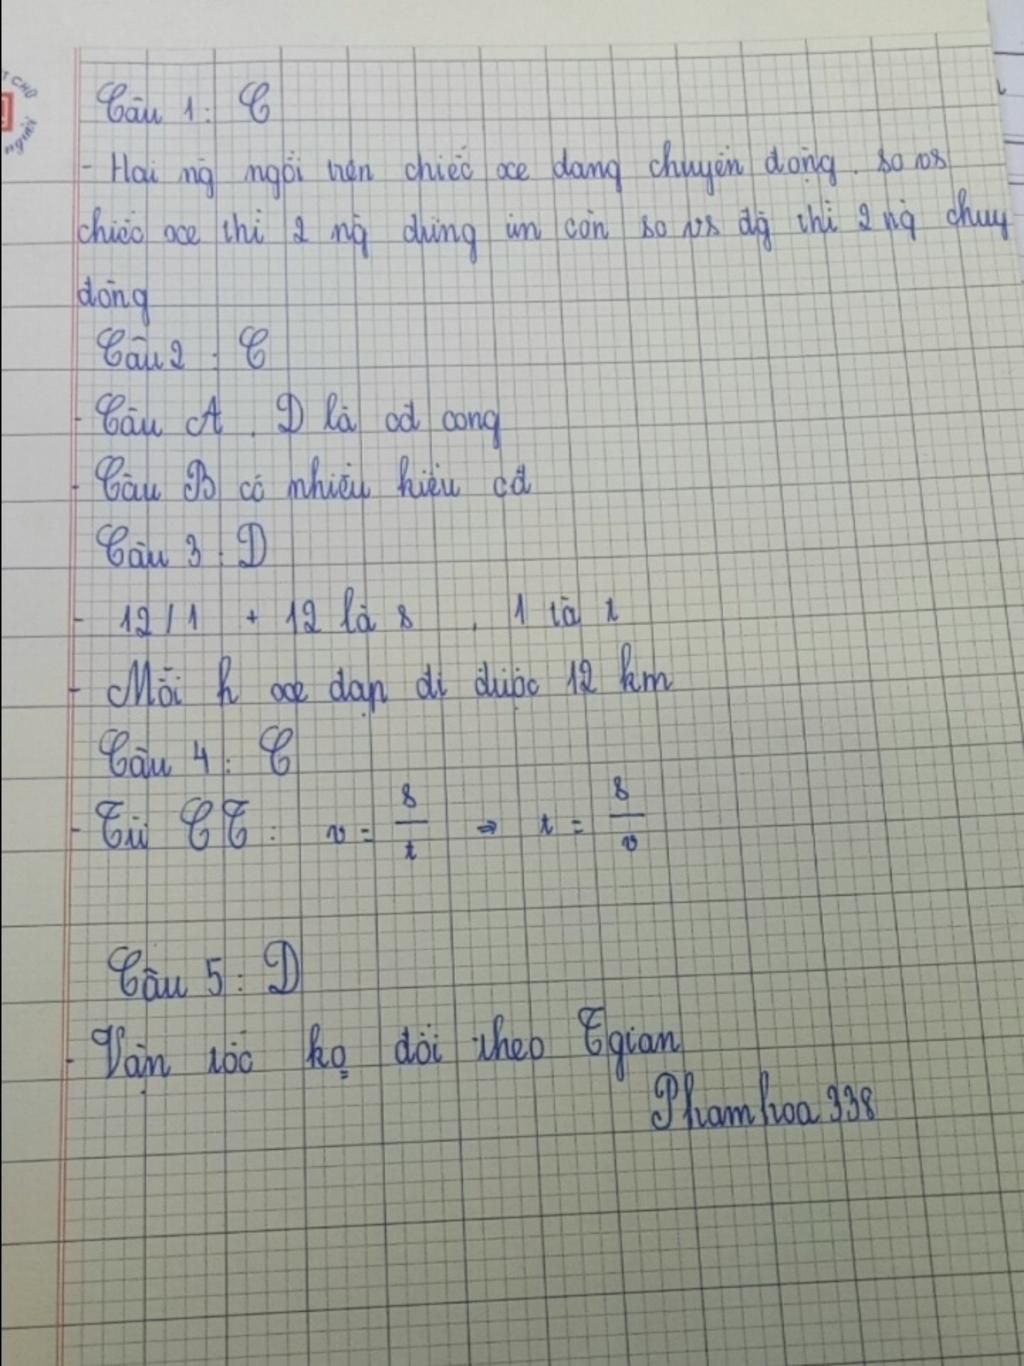 T CHỮ
người
Câu 1: C
- Hai ng ngồi trên chiếc xe đang chuyển động. so vs
chiếc xe thì 2 ng đứng im còn so vs đg thì 2 ng chuy
động
Câu 2: C
- Câu A, D là cđ cong
- Câu B có nhiều kiểu cđ
Câu 3: D
- 12/1 + 12 là s, 1 là t
- Mỗi h xe đạp đi được 12 km
Câu 4: C
- Từ CT: v = s/t ⇒ t = s/v
Câu 5: D
- Vận tốc ko đổi theo Tgian
Phamhoa 338